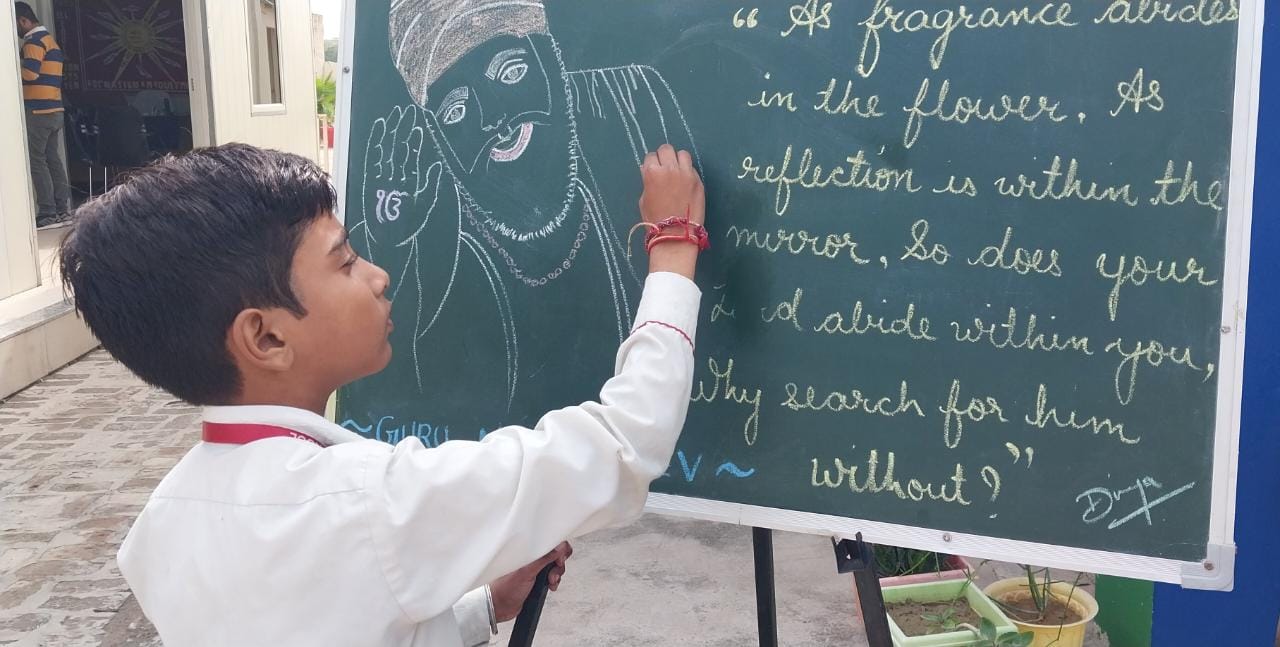 “ As fragrance abides
in the flower. As
reflection is within the
mirror, So does your
abide within you,
Why search for him
without?”
Divya
~ GURU
EV ~
ੴ